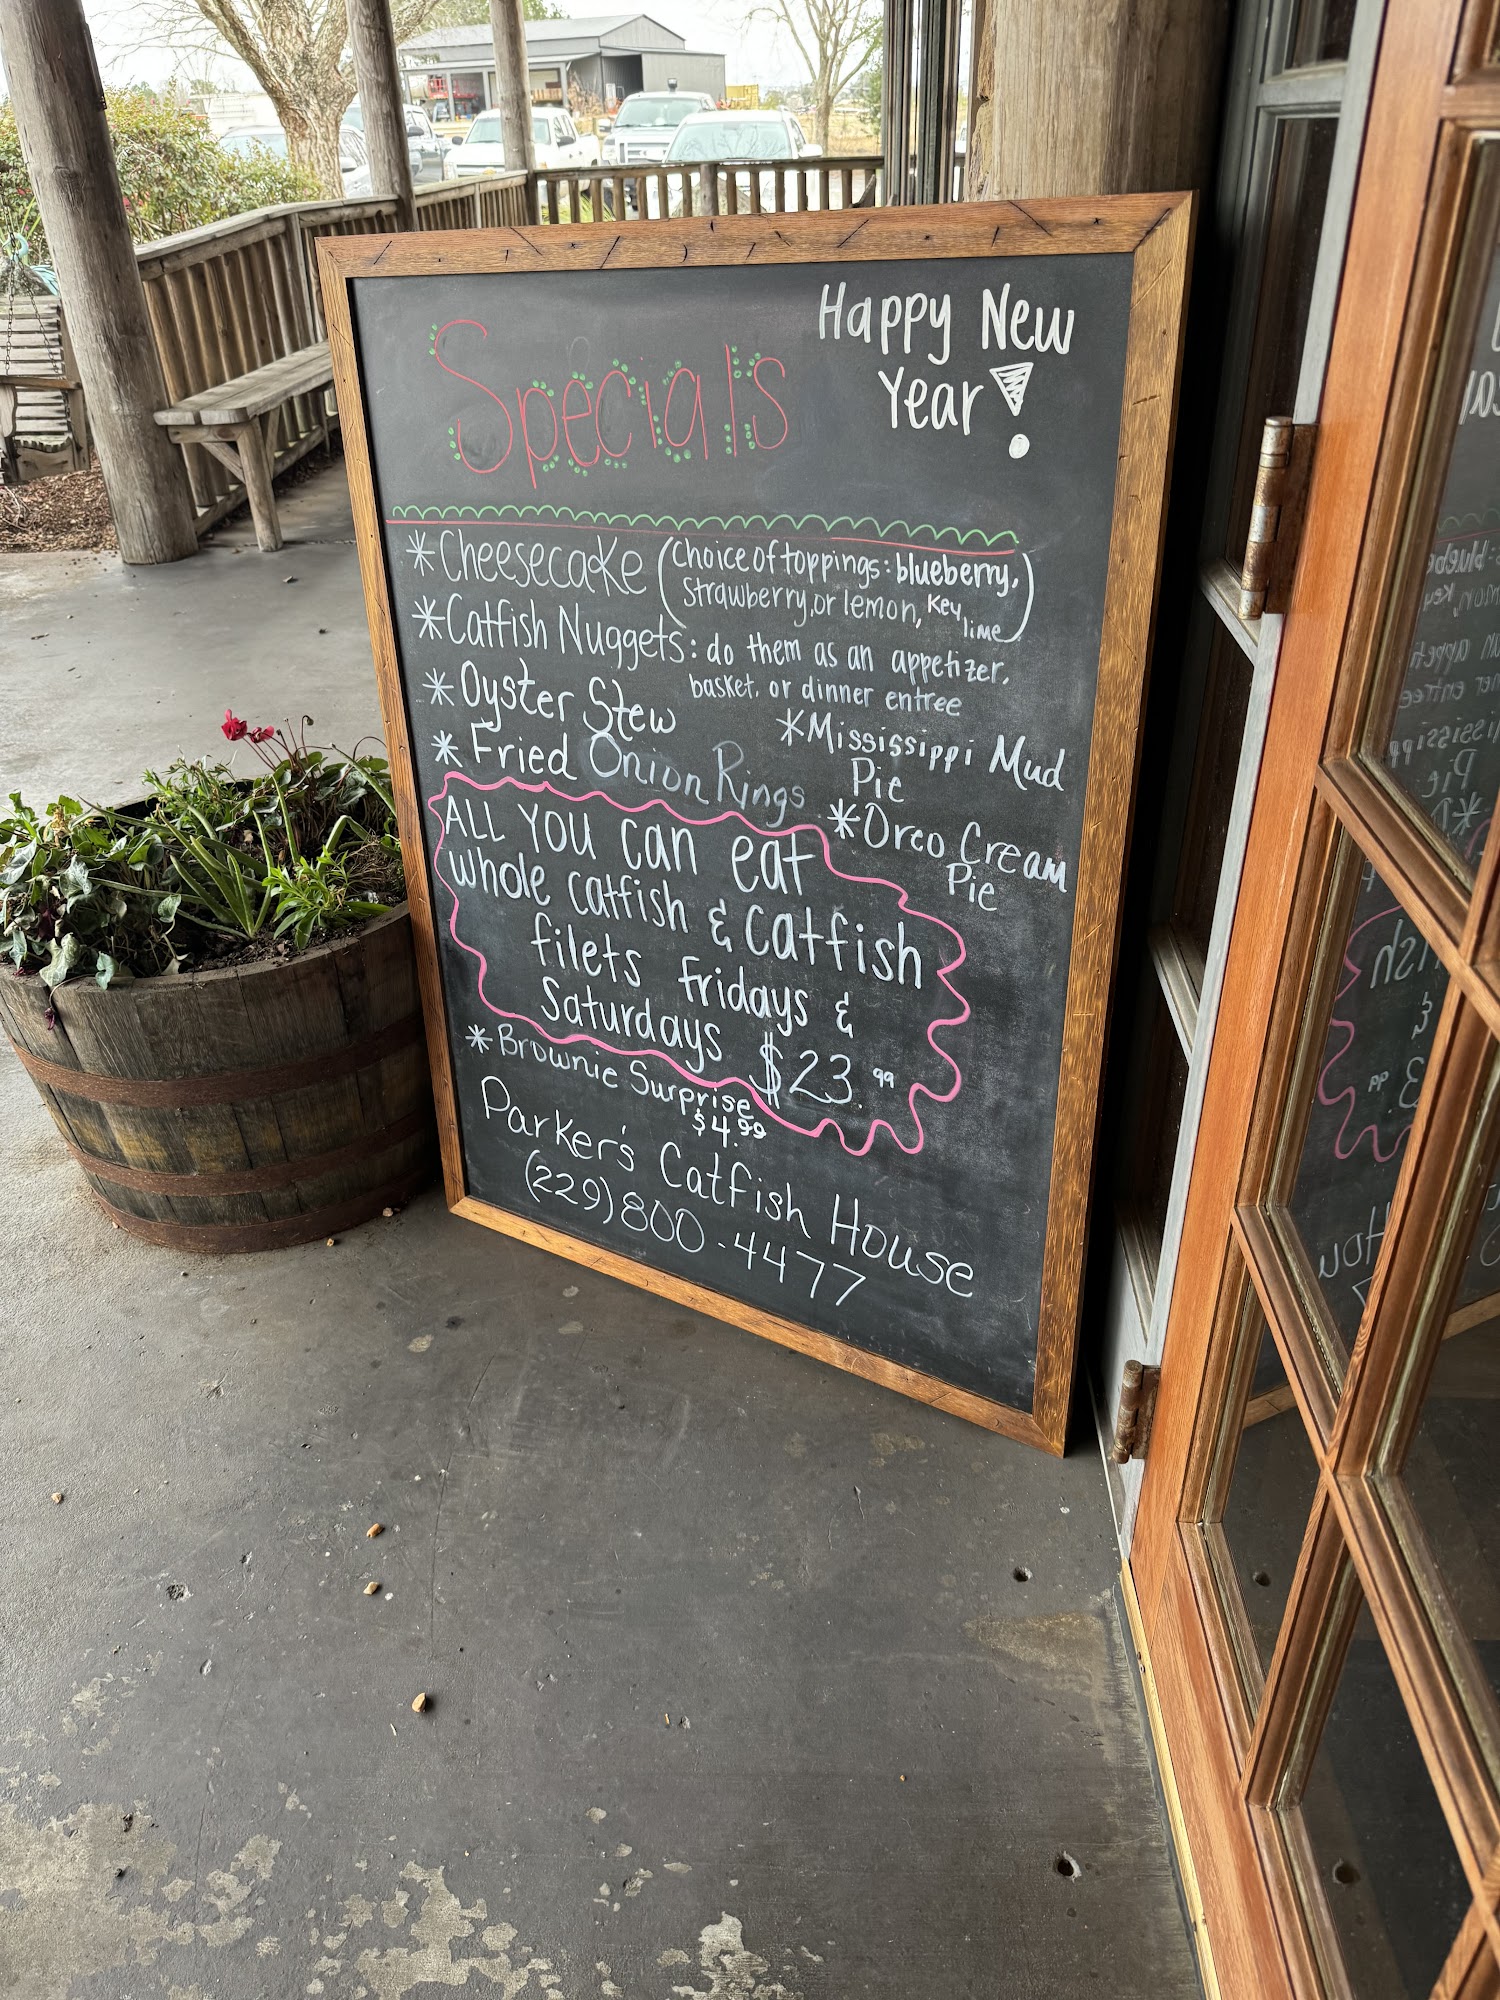 Happy New
Year!
Specials
*Cheesecake (Choice of toppings: blueberry,
Strawberry, or lemon, Key
lime)
*Catfish Nuggets: do them as an appetizer,
basket, or dinner entree
*Oyster Stew
*Fried Onion Rings
*Mississippi Mud
Pie
*Oreo Cream
Pie
ALL YOU can eat
whole catfish & Catfish
filets fridays &
Saturdays $23.99
*Brownie Surprise
$4.99
Parker's Catfish House
(229)800-4477